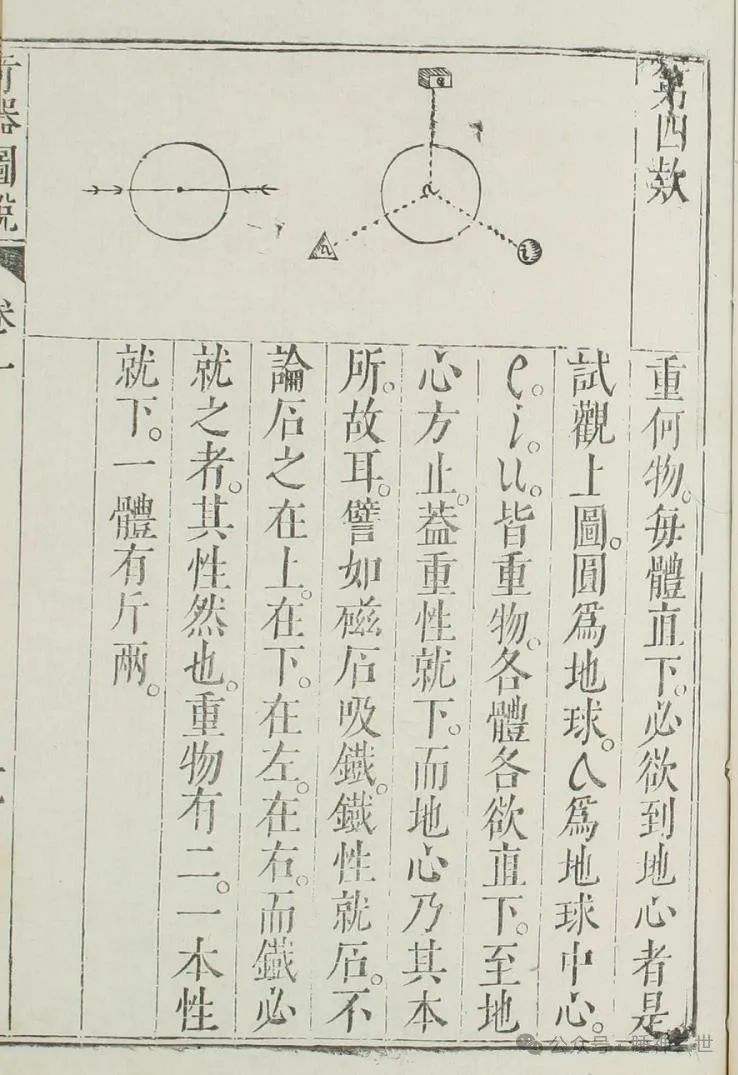 第四款
重何物。每體直下。必欲到地心者是
試觀上圖。圓爲地球。a爲地球中心。
e。i。u。皆重物。各體各欲直下。至地
心方止。蓋重性就下。而地心乃其本
所。故耳。譬如磁石吸鐵。鐵性就石。不
論石之在上。在下。在左。在右。而鐵必
就之者。其性然也。重物有二。一本性
就下。一體有斤兩。
奇器圖說
卷一